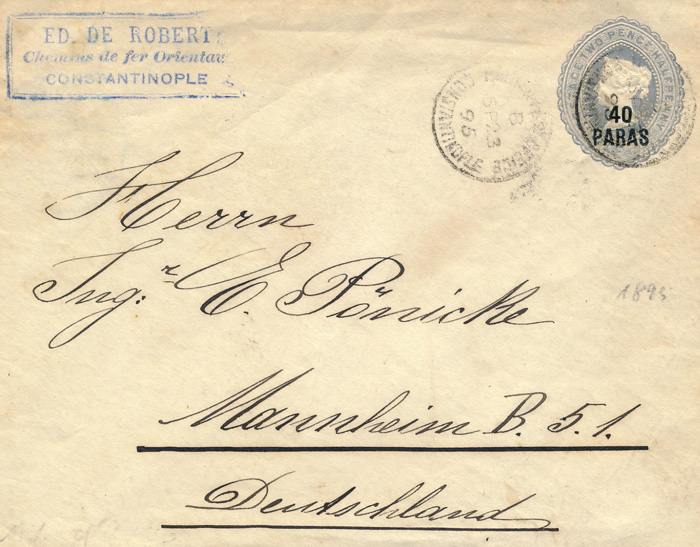 ED. DE ROBERT
Chemins de fer Orientaux
CONSTANTINOPLE
POSTAGE TWO PENCE HALFPENNY
40
PARAS
BRITISH POST OFFICE
CONSTANTINOPLE
B
SP 23
95
Herrn
Ingr: E. Pönicke
1895
Mannheim B. 5. 1.
Deutschland